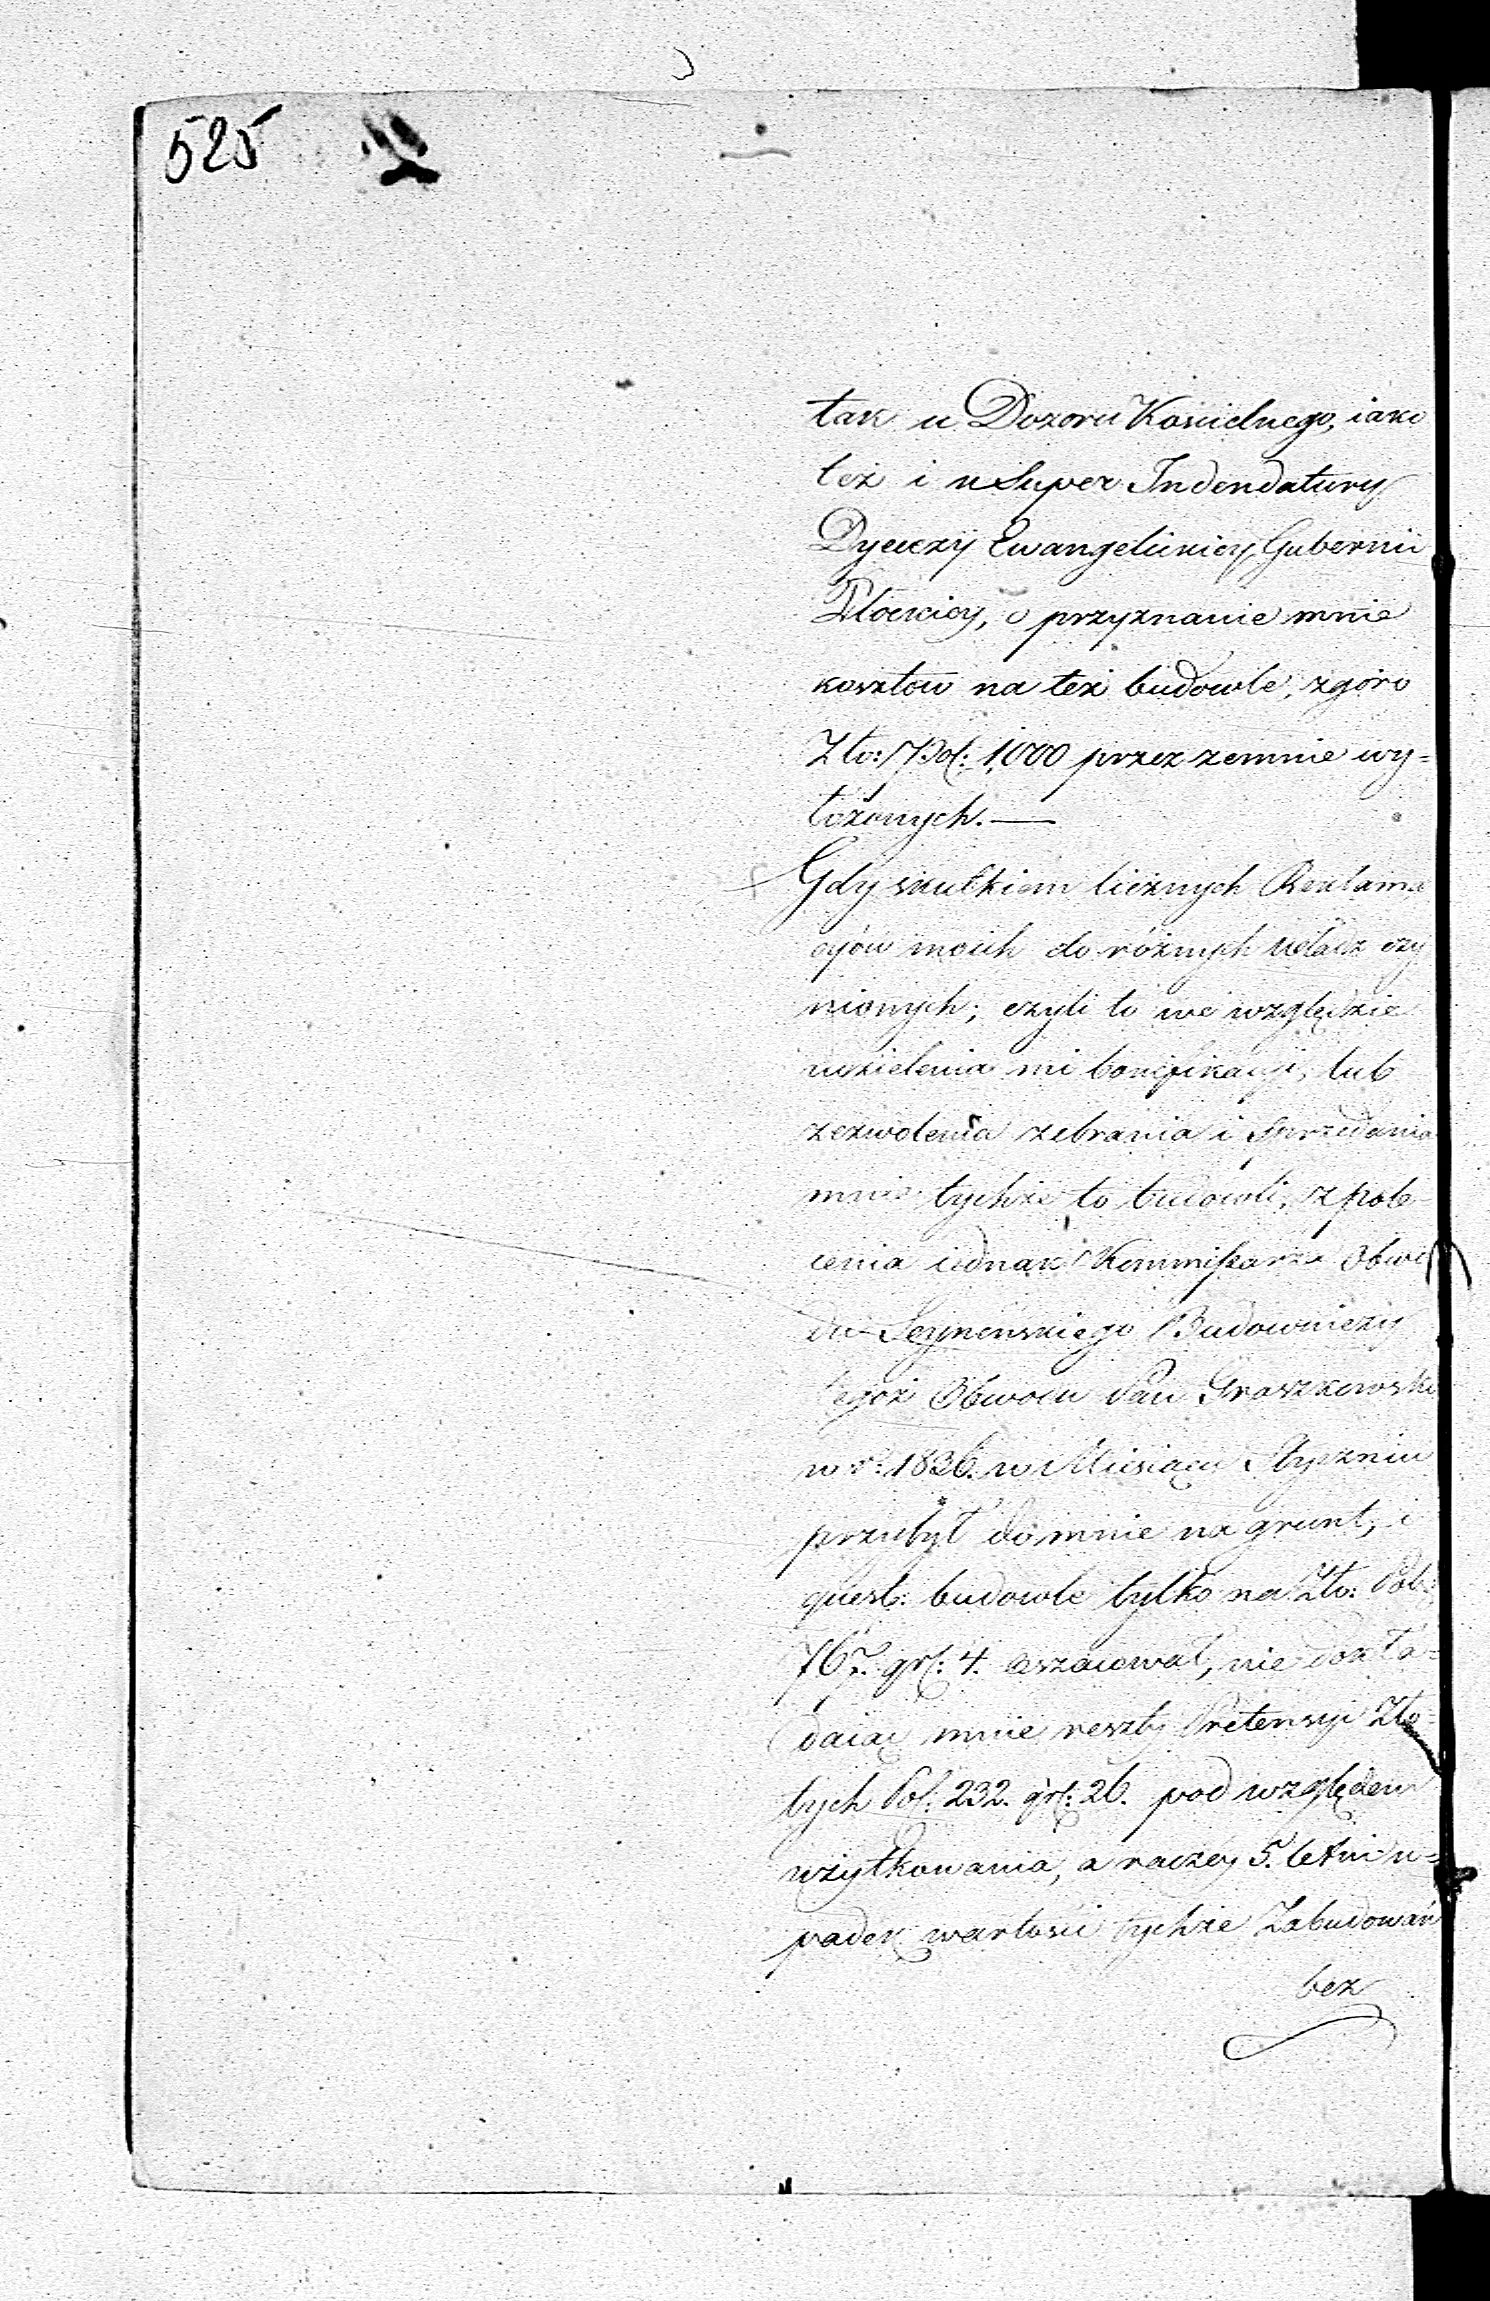 525
tak u Dozoru Kościelnego, iako
też i u Super Indendatury
Dyecezyi Ewangelickiey Gubernii
Płockiey, o przyznanie mnie
kosztów na też budowle, zgóro
Zło: Pol: 1000 przez zemnie wy=
łożonych. —
Gdy skutkiem licznych Reklama
cyów moich do różnych władz czy
nionych; czyli to we względzie
udzielenia mi bonifikacyi, lub
zezwolenia zebrania i sprzedania
mnie tychże to budowli, z pole
cenia iednak Kommissarza Obwo
du Seyneńskiego Budowniczy
tegoż Obwodu Pan Graszkowski
w r: 1836. w Miesiącu Styczniu
przybył do mnie na grunt, i
quest: budowle tylko na Zło: Pol:
767. gr: 4. oszacował, nie dokła=
daiąc mnie reszty Pretensyi Zło=
tych Pol: 232. gr: 26. pod względem
użytkowania, a raczey 5. letni u=
padek wartości tychże Zabudowań
bez